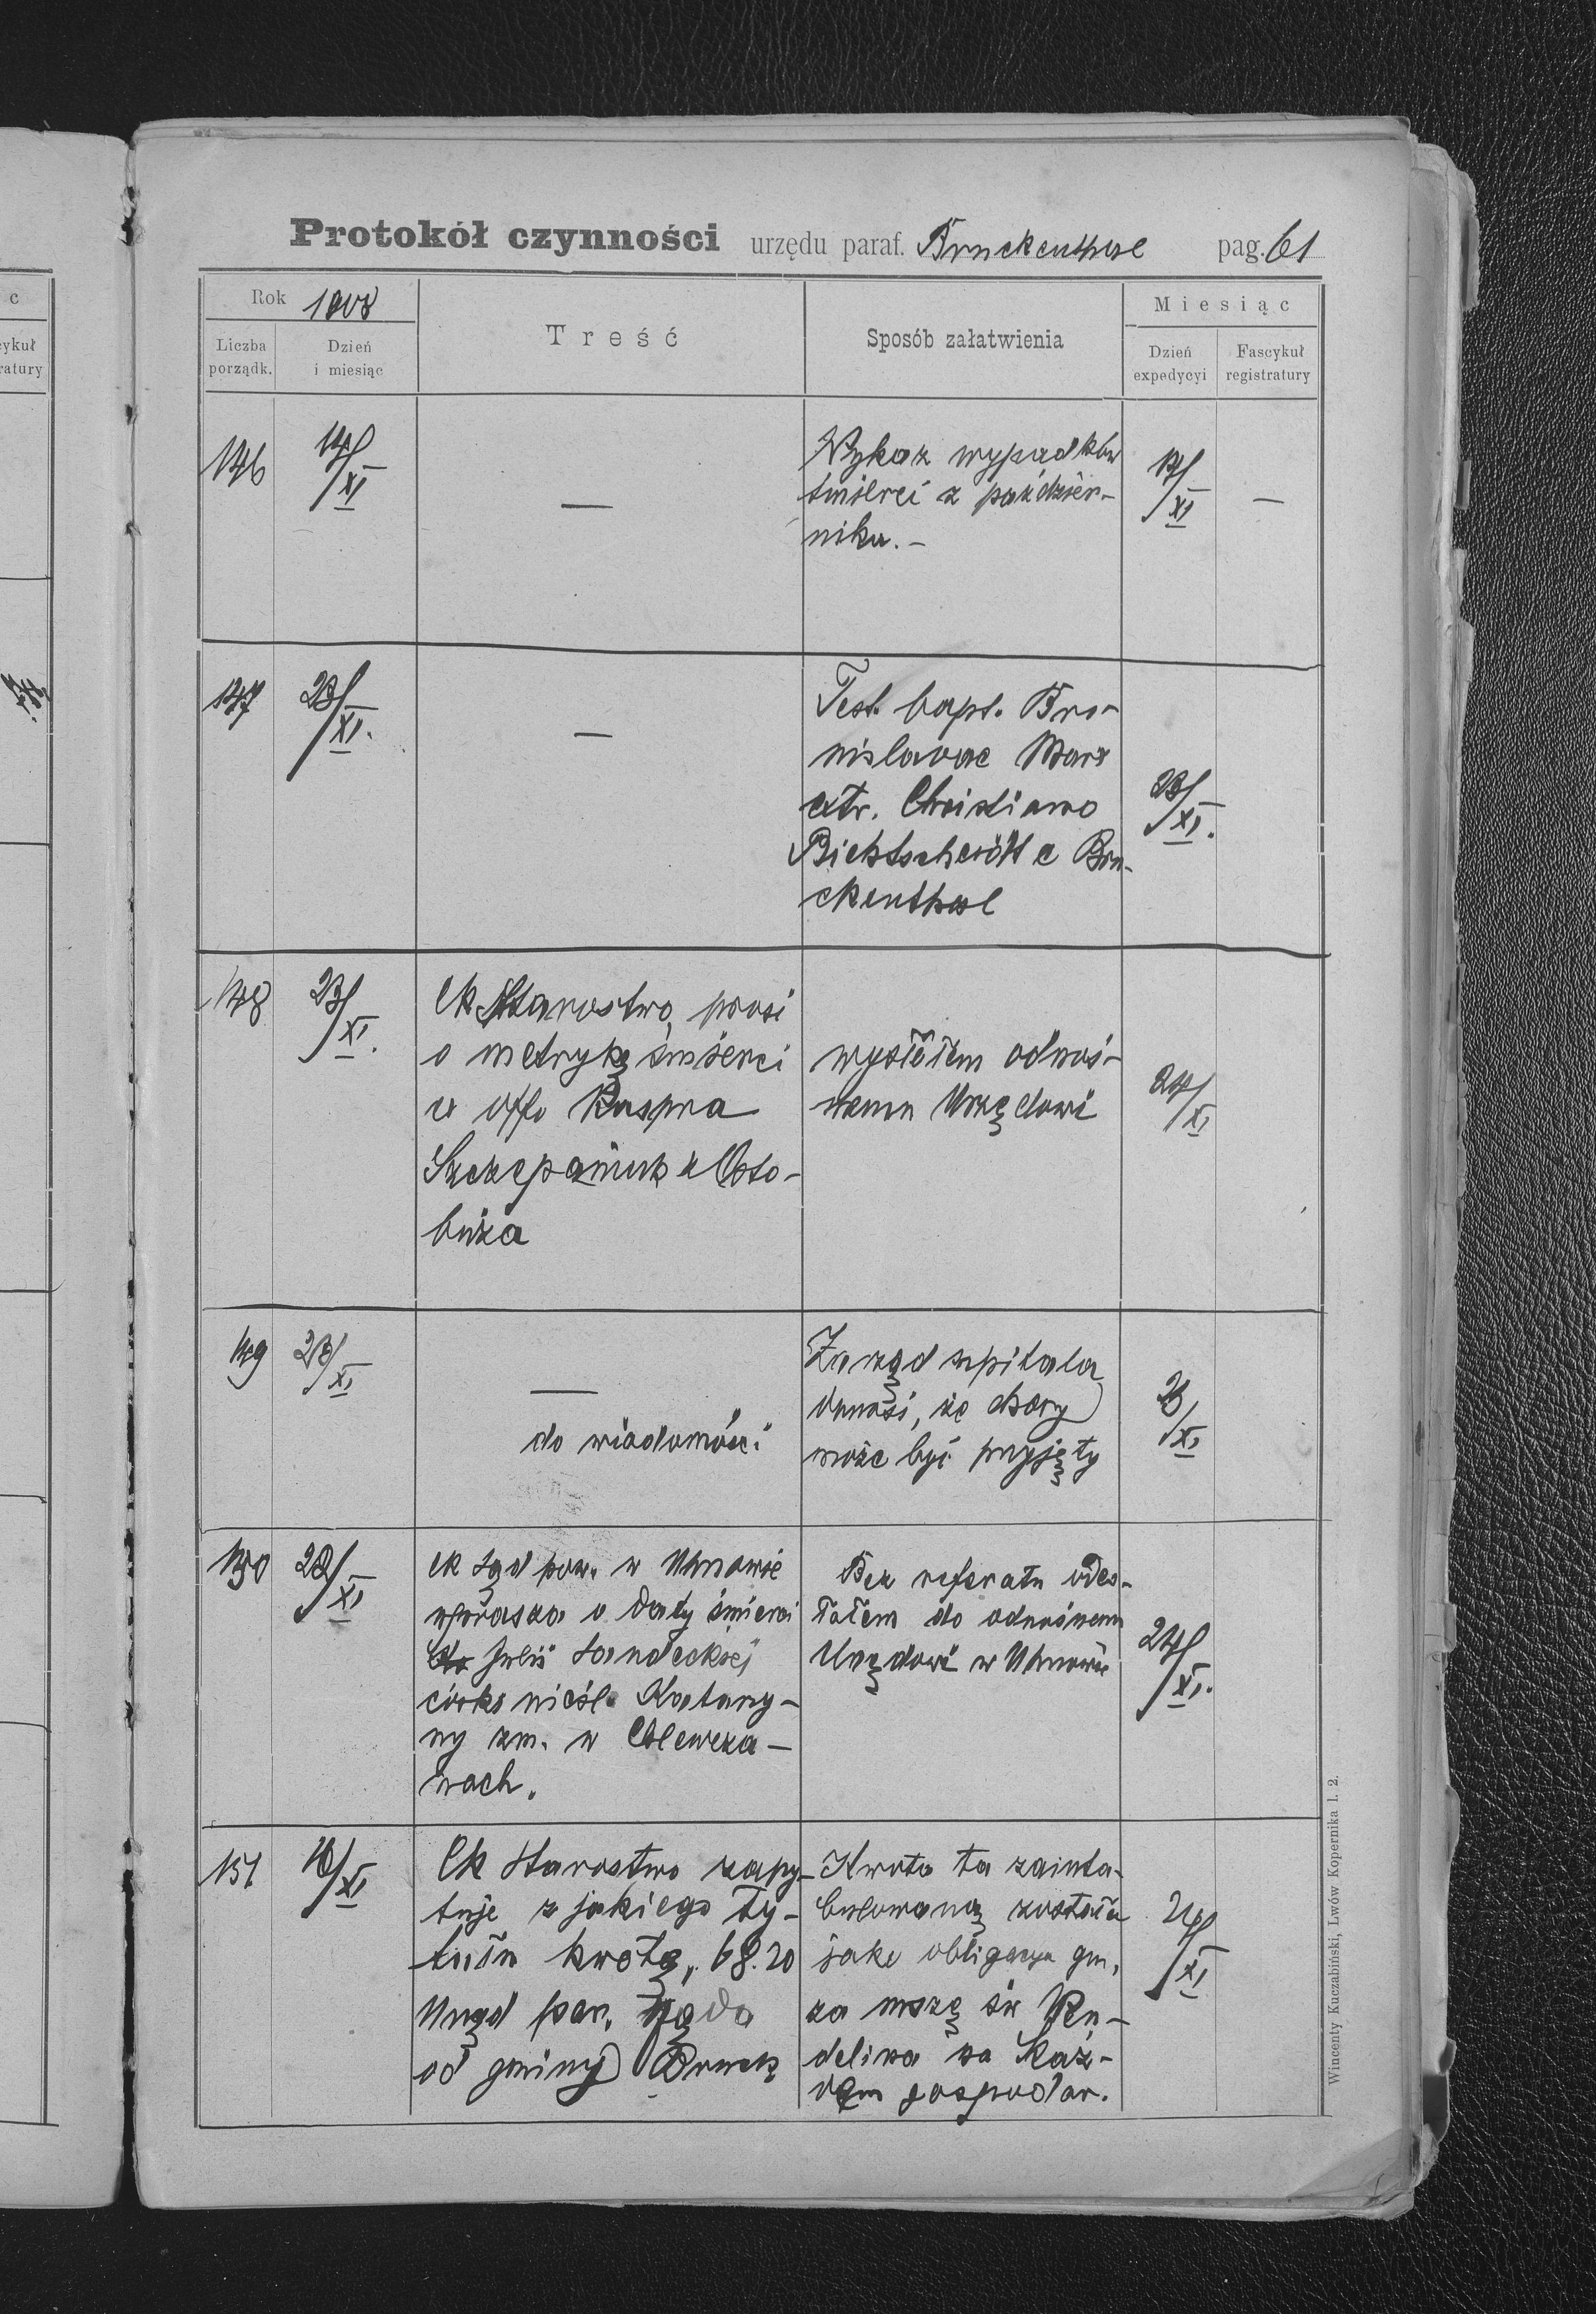 Protokół czynności urzędu paraf. Bruckenthal pag. 61
Rok 1908
Liczba porządk.
Dzień i miesiąc
Treść
Sposób załatwienia
Miesiąc
Dzień expedycyi
Fascykuł registratury
146
14/XI
—
Wykaz wypadków
śmierci z paździer-
nika. -
14/XI
—
147
23/XI.
—
Test. bapt. Bro-
nislavae Marx
extr. Christiano
c Bru-
ckenthal
23/XI.
148
23/XI.
Ck Starostwo prosi
o metrykę śmierci
ex offo Kaspra
Szczepaniuk z Chło-
buża
wysłałem odnoś-
nemu Urzędowi
24/XI
149
23/XI
—
do wiadomości
Zarząd szpitala
donosi, że chory
może być przyjęty
23/XI
150
23/XI
ck Sąd pow. w Uhnowie
uprasza o daty śmierci
Julii Sandeckiej
córki nieśl. Katarzy-
ny zm. w Chlewcza-
nach.
Bez referatu odes-
łałem do odnośnemu
Urzędowi w Uhnowie
24/XI.
151
/XI
Ck Starostwo zapy-
tuje z jakiego ty-
tułu kwotę 68.20
Urząd par. żąda
od gminy Bruck
Kwota ta zainta-
bulowaną została
jako obligacya gm.
za mszę św
na każ-
dem gospodar.
24/XI
Wincenty Kuczabiński, Lwów Kopernika l. 2.
c
cykuł
ratury